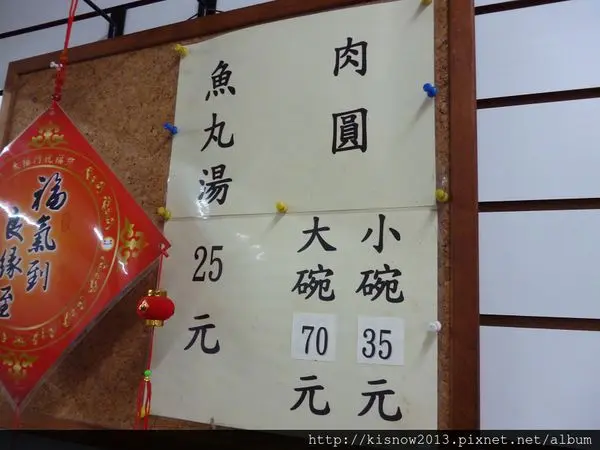 肉圓
小碗35元
大碗70元
魚丸湯
25元
福氣到
良緣至
http://kisnow2013.pixnet.net/album